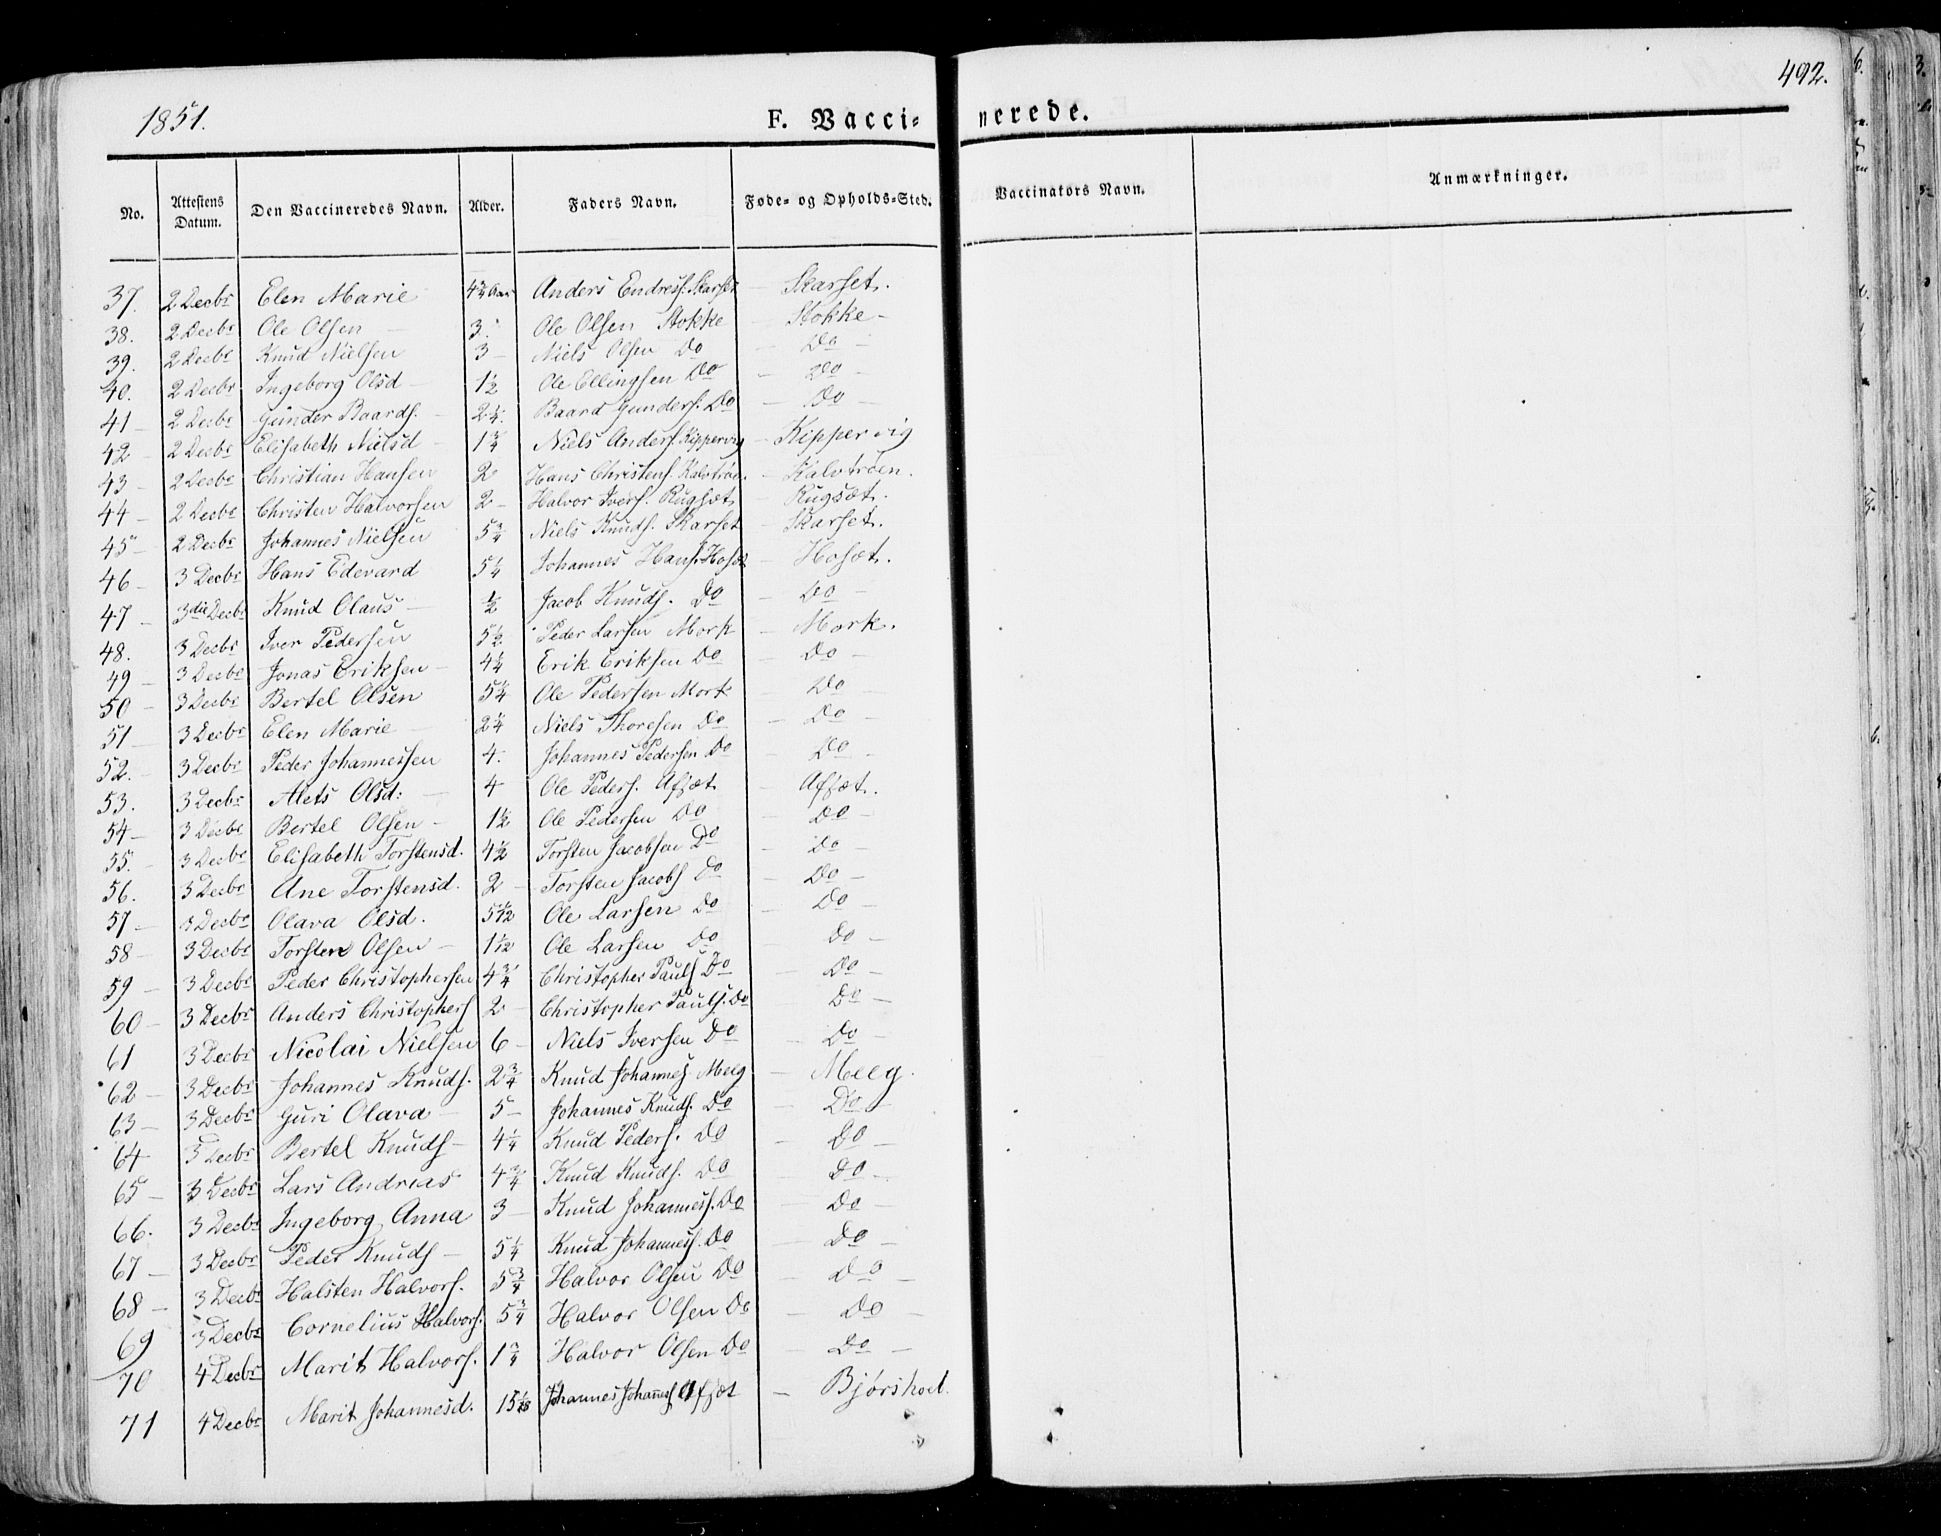 1851.
492.
F. Vacci-
nerede.
No. | Attestens Datum. | Den Vaccineredes Navn. | Alder. | Faders Navn. | Føde- og Opholds-Sted. | Vaccinators Navn. | Anmærkninger.
37. 2 Decbr Elen Marie 4 3/4 Aar Anders Endress. Skarset – Skarset.
38. 2 Decbr Ole Olsen – 3. Ole Olsen Stokke – Stokke –
39. 2 Decbr Knud Nielsen 3 – Niels Olsen Do – Do –
40. 2 Decbr Ingeborg Olsd – 1 1/2 Ole Ellingsen Do – Do –
41 – 2 Decbr Gunder Baards. – 2 1/4. Baard Gunders. Do – Do –
42 – 2 Decbr Elisabeth Nielsd – 1 3/4 Niels Anders. Kippervig – Kippervig
43 – 2 Decbr Christian Hansen 2 Hans Christens. Kalvtrøen. – Kalvtrøen.
44 – 2 Decbr Christen Halvorsen 2 – Halvor Ivers. Rugsæt – Rugsæt.
45 – 2 Decbr Johannes Nielsen 5 3/4 Niels Knuds. Skarset – Skarset.
46 – 3 Decbr Hans Edevard 5 1/4 Johannes Hans. Hosæt – Hosæt.
47 – 3die Decbr Knud Olaus – 1/2 Jacob Knuds. Do – Do –
48. 3 Decbr Iver Pedersen 5 1/2 Peder Larsen Mork – Mork.
49 – 3 Decbr Jonas Eriksen – 4 1/4 Erik Eriksen Do – Do –
50 – 3 Decbr Bertel Olsen 5 1/4 Ole Pedersen Mork – Do –
51 – 3 Decbr Elen Marie – 2 1/4 Niels Thoresen Do – Do –
52. – 3 Decbr Peder Johannessen 4. Johannes Pedersen Do – Do –
53. 3 Decbr Alets Olsd: – 4 Ole Peders. Afsæt – Afsæt.
54 – 3 Decbr Bertel Olsen – 1 1/2 Ole Pedersen Do – Do –
55. – 3 Decbr Elisabeth Torstensd. 4 1/2 Torsten Jacobsen Do – Do –
56. 3 Decbr Ane Torstensd. 2 – Torsten Jacobs Do – Do –
57 – 3 Decbr Olava Olsd. 5 1/12 Ole Larsen Do – Do –
58 – 3 Decbr Torsten Olsen – 1 1/12 Ole Larsen Do Do –
59 – 3 Decbr Peder Christophersen 4 3/4 Christopher Pauls Do – Do –
60 – 3 Decbr Anders Christophers 2 – Christopher Pauls. Do – Do –
61 3 Decbr Nicolai Nielsen 6 – Niels Iversen Do – Do –
62 – 3 Decbr Johannes Knuds. 2 3/4 Knud Johannes. Meeg – Meeg.
63 – 3 Decbr Guri Olava – 5 – Johannes Knuds. Do – Do –
64 3 Decbr Bertel Knuds – 4 1/4 Knud Peders. Do – Do –
65 – 3 Decbr Lars Andreas 4 3/4 Knud Knuds. Do – Do –
66. 3 Decbr Ingeborg Anna 3 – Knud Johanness. Do – Do –
67 – 3 Decbr Peder Knuds – 5 1/4 Knud Johanness. Do – Do –
68 – 3 Decbr Halsten Halvors. 5 3/4 Halvor Olsen Do – Do –
69 3 Decbr Cornelius Halvors. 5 3/4 Halvor Olsen Do – Do –
70 4 Decbr Marit Halvors. 1 3/4 Halvor Olsen Do – Do –
71 4 Decbr Marit Johannesd. 15 Johannes Johannes Afsæt – Bjørshoel.